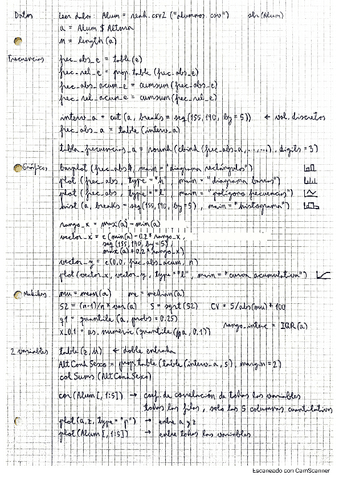 Datos leer datos: Alum = read.csv2 ("alumnos.csv") str(Alum)
a = Alum $ Altura
n = length (a)
Frecuencias frec_abs_z = table (z)
frec_rel_z = prop.table (frec_abs_z)
frec_abs_acum_z = cumsum (frec_abs_z)
frec_rel_acum_z = cumsum (frec_rel_z)
interv_a = cut (a, breaks = seq (155, 190, by = 5)) ← v. discretos
frec_abs_a = table (interv_a)
tabla_frecuencias_a = round (cbind (frec_abs_a, ......), digits = 3)
Gráficos barplot (frec_abs, main = "diagrama rectángulos")
plot (frec_abs, type = "h", main = "diagrama barras")
plot (frec_abs, type = "l", main = "polígono frecuencias")
hist (a, breaks = seq (155, 190, by = 5), main = "histograma")
rango_x = max(a) - min(a)
vector_x = c (min(a) - 0.2 * rango_x,
seq (155, 190, by = 5),
max(a) + 0.2 * rango_x)
vector_y = c(0,0, frec_abs_acum, n)
plot (vector_x, vector_y, type = "l", main = "curva acumulativa")
Medidas m = mean(a) me = median(a)
S2 = (n-1)/n * var(a) S = sqrt (S2) CV = S/abs(m) * 100
q1 = quantile (a, probs = 0.25)
x_0.1 = as.numeric (quantile (a, 0.1)) rango_interc = IQR(a)
2 variables table (z, u) ← doble entrada
AltCondSexo = prop.table (table (interv_a, s), margin = 2)
colSums (AltCondSexo)
cor (Alum [, 1:5]) → coef. de correlación de todas las variables
todas las filas, solo las 5 columnas cuantitativas
plot (a, z, type = "p") → entre a y z
plot (Alum [, 1:5]) → entre todas las variables
Escaneado con CamScanner